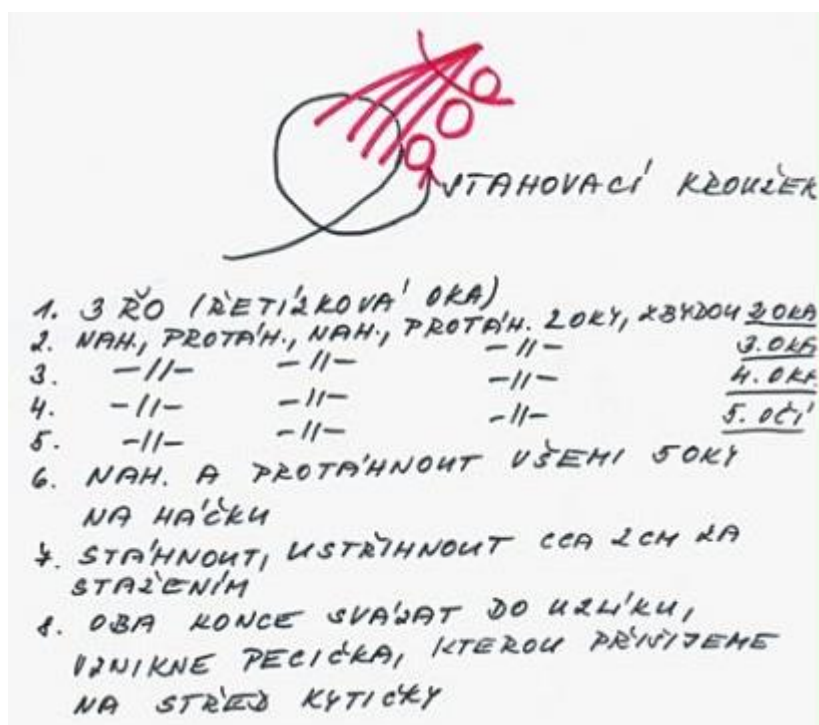 STAHOVACÍ KROUŽEK
1. 3 ŘO (ŘETÍZKOVÁ OKA)
2. NAH., PROTÁH., NAH., PROTÁH. 2 OKY, ZBYDOU 2 OKA
3. -//- -//- -//- 3. OKA
4. -//- -//- -//- 4. OKA
5. -//- -//- -//- 5. OČÍ
6. NAH. A PROTÁHNOUT VŠEMI 5 OKY
NA HÁČKU
7. STÁHNOUT, USTŘIHNOUT CCA 2 CM ZA
STAŽENÍM
8. OBA KONCE SVÁZAT DO UZLÍKU,
VZNIKNE PECIČKA, KTEROU PŘIŠIJEME
NA STŘED KYTIČKY